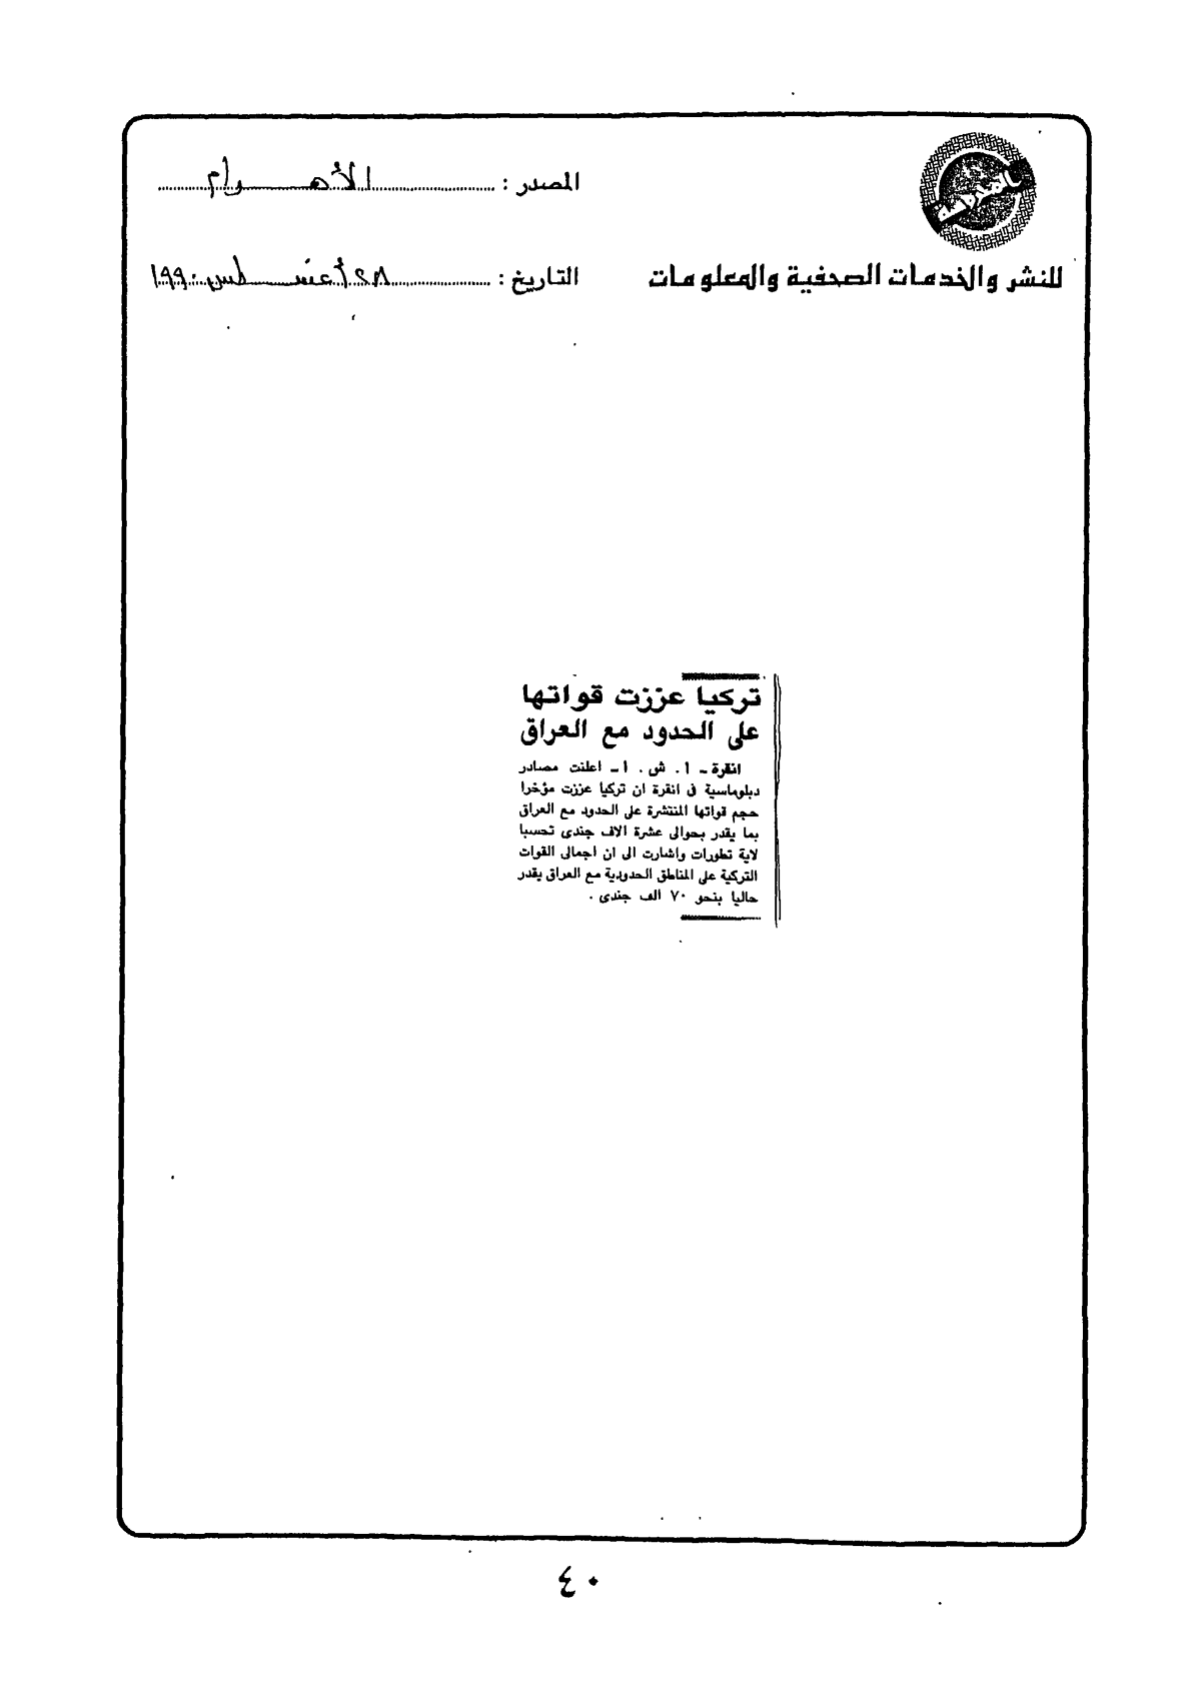 المصدر : الأهرام
للنشر والخدمات الصحفية والمعلومات
التاريخ : ٢٨ أغسطس ١٩٩٠
تركيا عززت قواتها
على الحدود مع العراق
انقرة ـ ا . ش . ا ـ اعلنت مصادر
دبلوماسية فى انقرة ان تركيا عززت مؤخرا
حجم قواتها المنتشرة على الحدود مع العراق
بما يقدر بحوالى عشرة الاف جندى تحسبا
لاية تطورات واشارت الى ان اجمالى القوات
التركية على المناطق الحدودية مع العراق يقدر
حاليا بنحو ٧٠ الف جندى .
٤٠